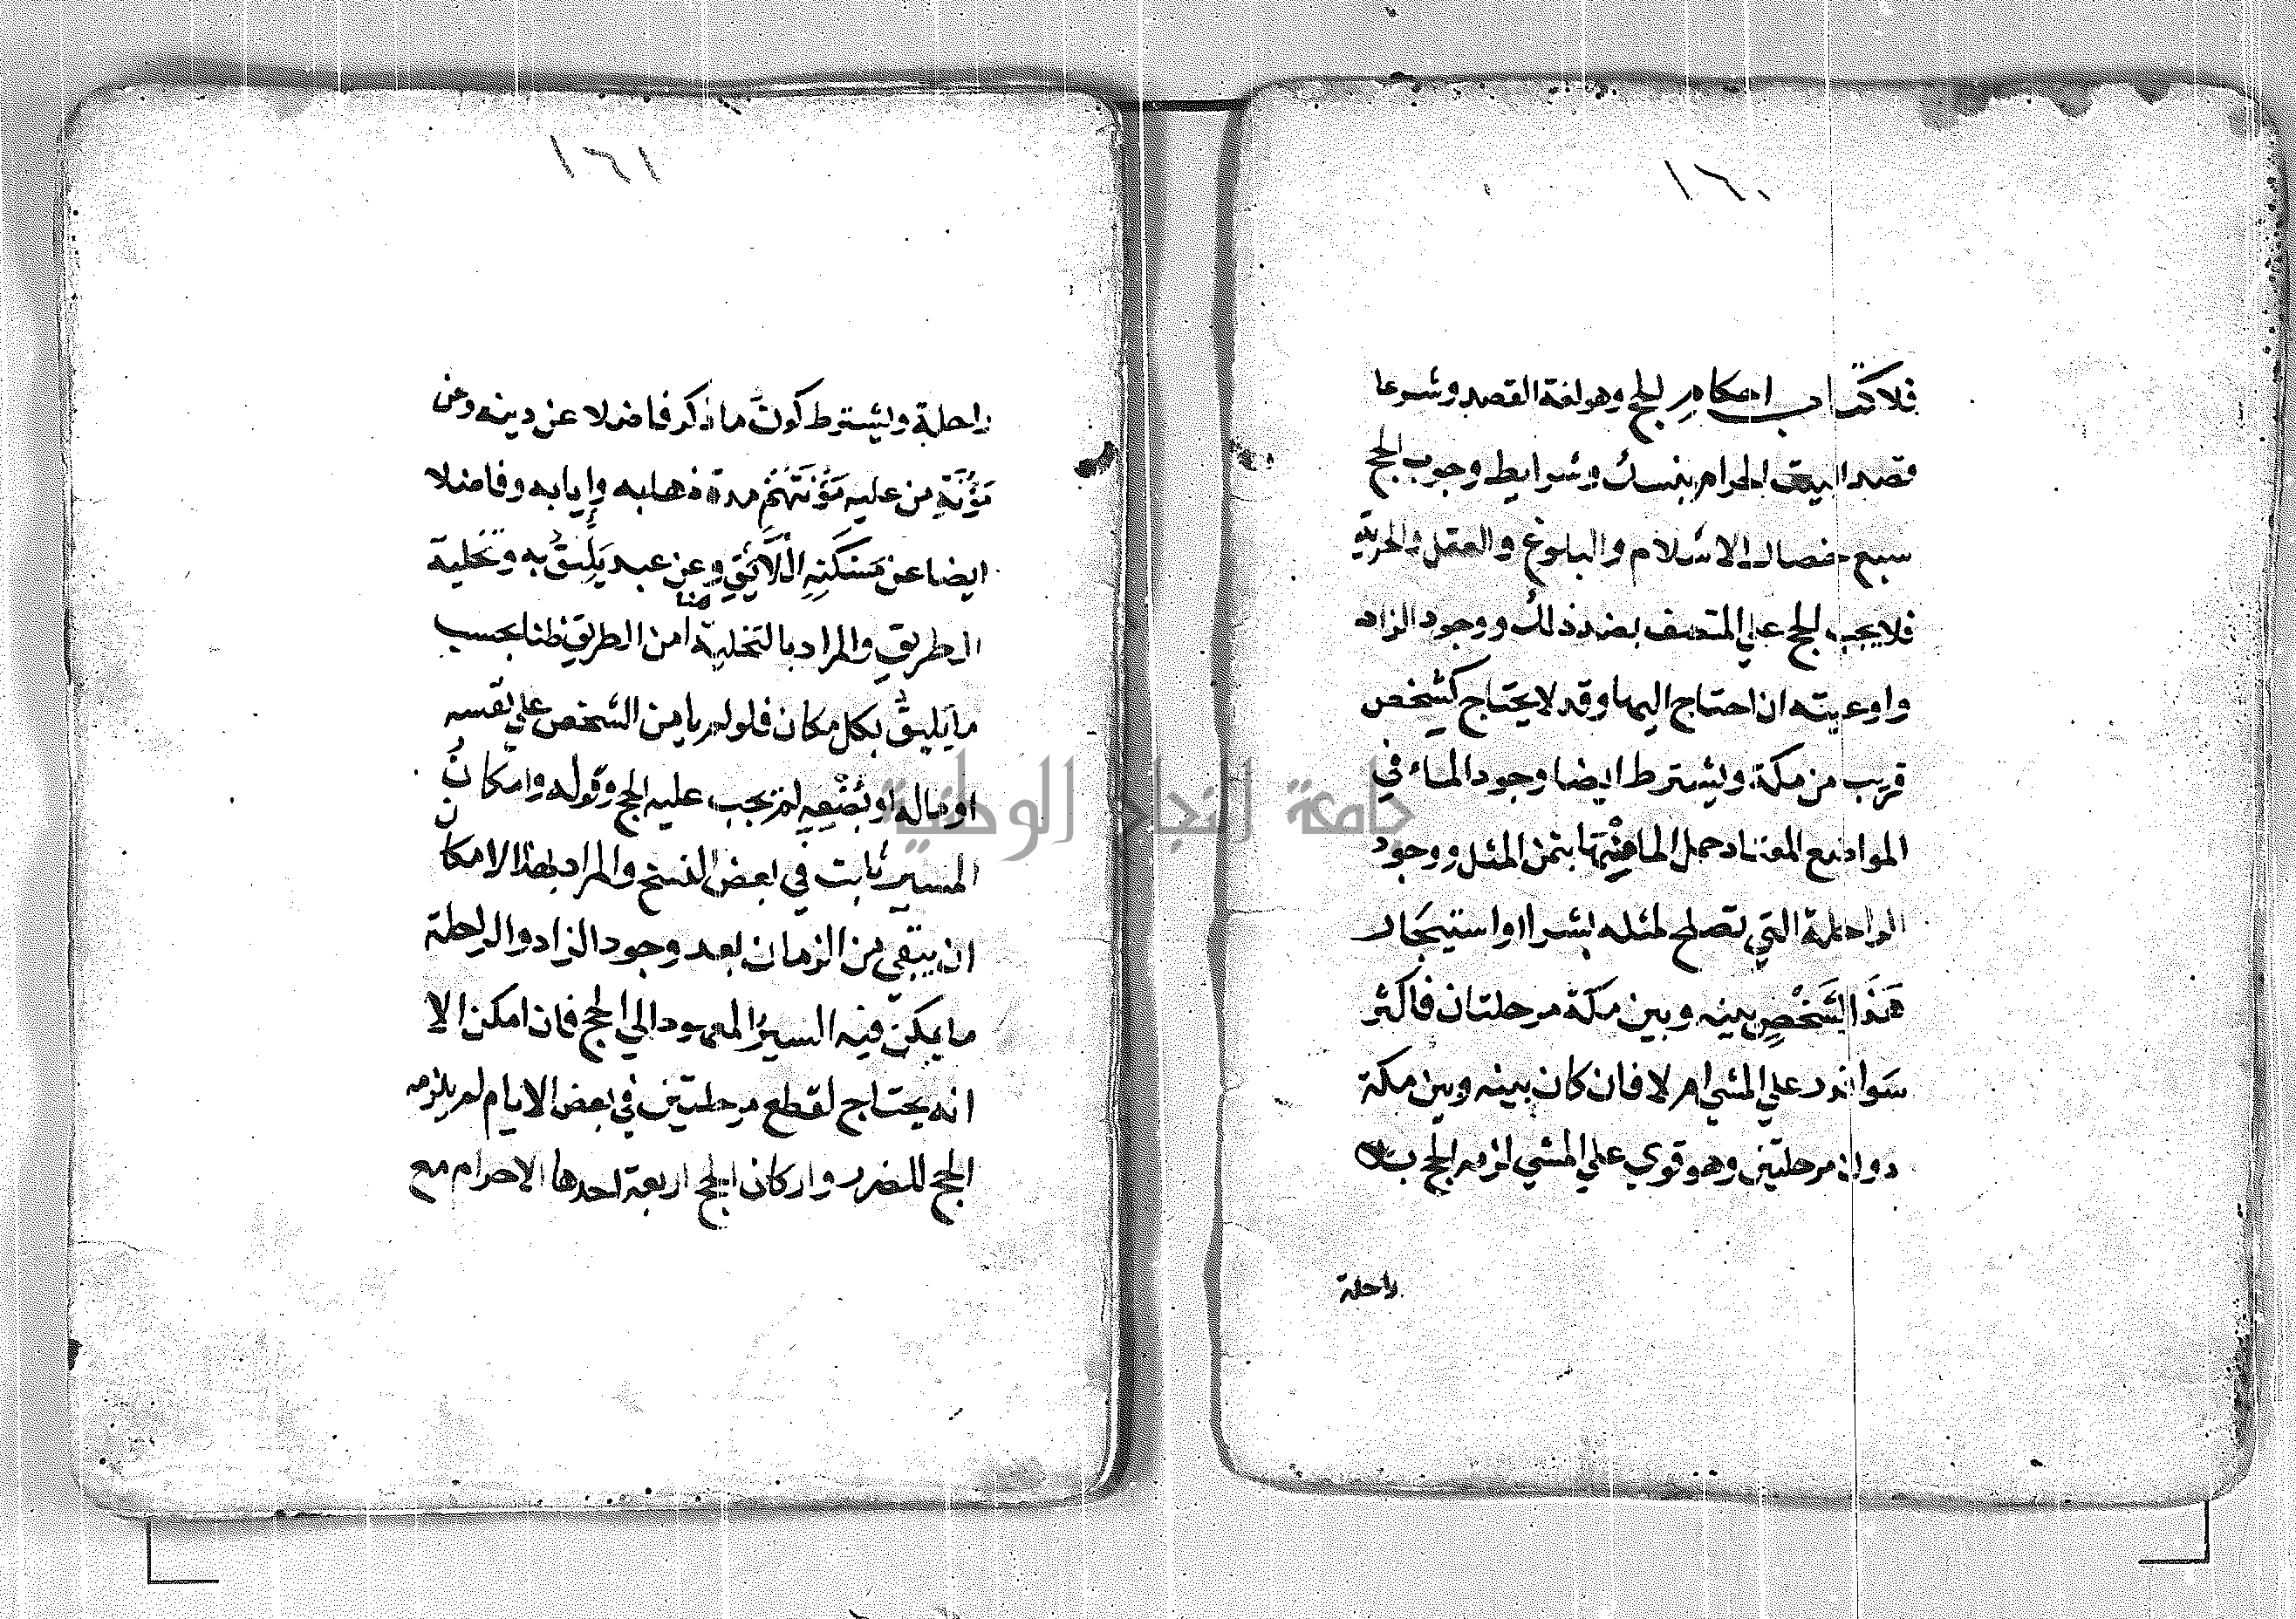 ١٦٠
فلا كتاب احكام الحج وهو لغة القصد وشرعا
قصد البيت الحرام بنسك وشرايط وجوب الحج
سبع خصال الاسلام والبلوغ والعقل والحرية
فلا يجب الحج علي المتصف بضد ذلك ووجود الزاد
واوعيته ان احتاج اليها وقد لا يحتاج كشخص
قريب من مكة ويشترط ايضا وجود الماء في
المواضع المعتاد حمل الما منها بثمن المثل ووجود
الراحلة التي تصلح لمثله بشرا او استيجار
هَذَا الشَخْصِ بينه وبين مكة مرحلتان فاكثر
سَوا قدر علي المشي ام لا فان كان بينه وبين مكة
دون مرحلتين وهو قوي علي المشي لزمه الحج بلا
راحلة
١٦١
راحلة ويشترط كونُ ما ذكر فاضلا عن دينه وعن
مَؤُنَةِ من عليه مَؤُنَتَهُمْ مدة ذهابه وإيابه وفاضلا
ايضا عن مَسْكَنِهِ الْلَائِقِ وعن عبد يَلِيقُ به وتخلية
الطريق والمراد بالتخلية هنا امن الطريق ظنا بحسب
ما يَليقُ بكل مكان فلو لم يامن الشخص علي نفسه
او ماله او بُضْعِهِ لم يجب عليه الحج وقوله وامكانُ
المسير ثابت في بعض النسخ والمراد بهذا الامكان
ان يبقي من الزمان بعد وجود الزاد والراحلة
ما يمكن فيه السيرُ المعهود الي الحج فان امكن الا
انه يحتاج لقطع مرحلتين في بعض الايام لم يلزمه
الحج للضرر واركان الحج اربعة احدها الاحرام مع
جامعة النجاح الوطنية